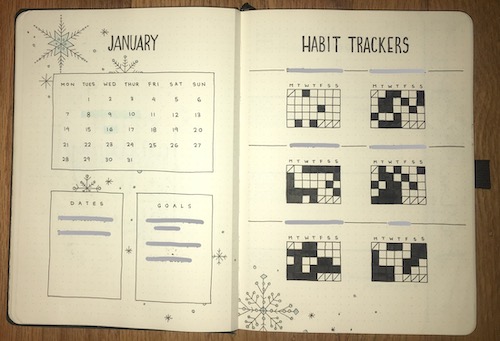 JANUARY
MON TUES WED THUR FRI SAT SUN
1 2 3 4 5 6
7 8 9 10 11 12 13
14 15 16 17 18 19 20
21 22 23 24 25 26 27
28 29 30 31
DATES
GOALS
HABIT TRACKERS
M T W T F S S
M T W T F S S
M T W T F S S
M T W T F S S
M T W T F S S
M T W T F S S